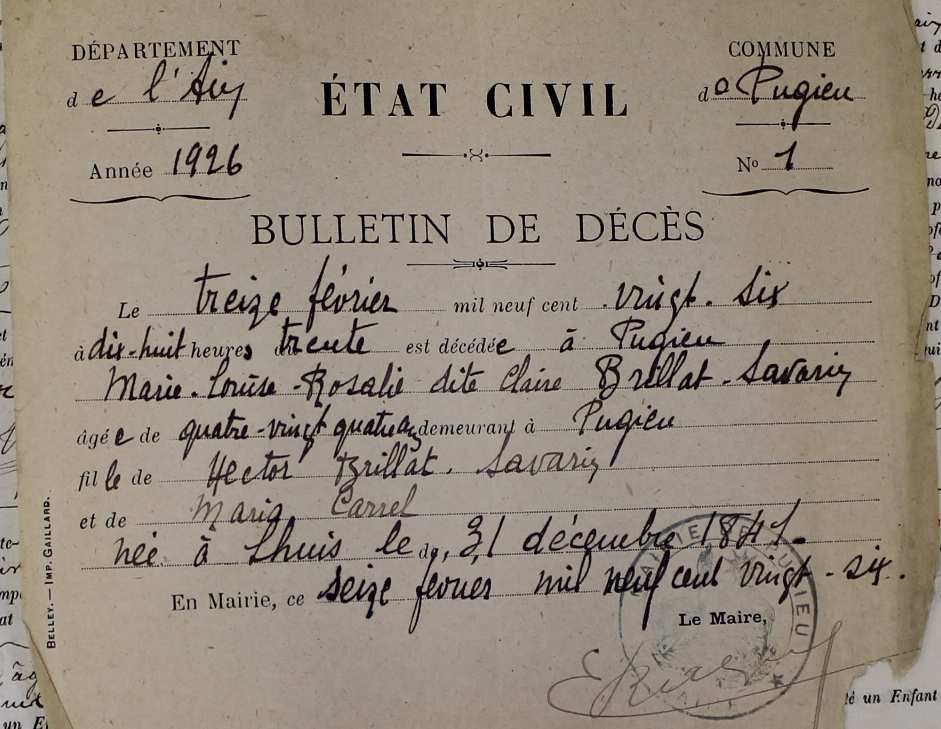 DÉPARTEMENT
de l'Ain
Année 1926
ÉTAT CIVIL
COMMUNE
de Pugieu
No 1
BULLETIN DE DÉCÈS
Le treize février mil neuf cent vingt-six
à dix-huit heures trente est décédée à Pugieu
Marie-Louise-Rosalie dite Claire Brillat-Savarin
âgée de quatre-vingt quatre ans demeurant à Pugieu
fille de Hector Brillat-Savarin
et de Maria Carrel
née à Lhuis le 31 décembre 1841.
En Mairie, ce seize février mil neuf cent vingt-six.
Le Maire,
BELLEY.—IMP. GAILLARD.
MAIRIE DE PUGIEU
un Enfant